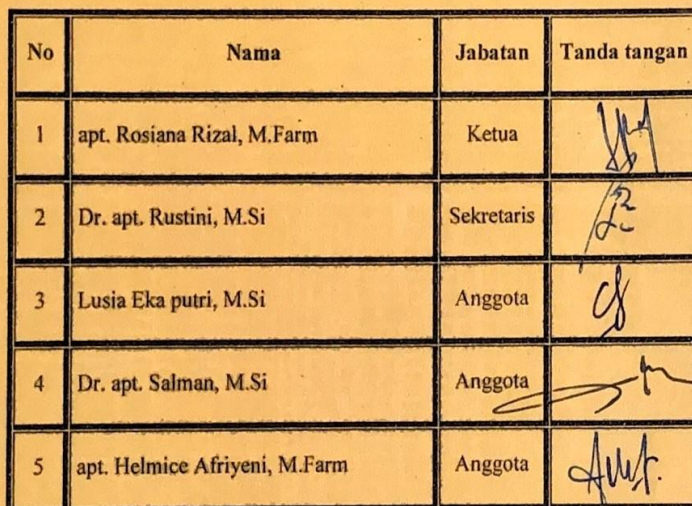 No Nama Jabatan Tanda tangan
1 apt. Rosiana Rizal, M.Farm Ketua
2 Dr. apt. Rustini, M.Si Sekretaris
3 Lusia Eka putri, M.Si Anggota
4 Dr. apt. Salman, M.Si Anggota
5 apt. Helmice Afriyeni, M.Farm Anggota